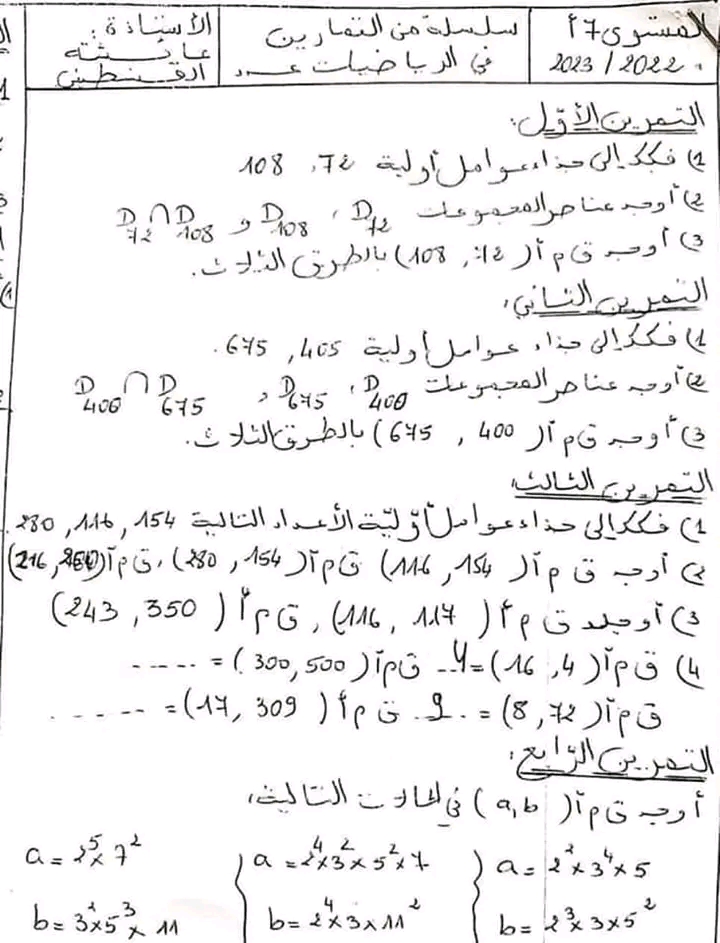 المستوى 7 أ
2022/2023
سلسلة من التمارين
في الرياضيات عدد
الأستاذة:
عائشة
القنطس
التمرين الأول:
1) فكك إلى جذاء عوامل أولية 72، 108
2) أوجد عناصر المجموعات D72، D108 و D72 ∩ D108
3) أوجد ق م أ (72، 108) بالطرق الثلاث.
التمرين الثاني:
1) فكك إلى جذاء عوامل أولية 405، 675.
2) أوجد عناصر المجموعات D400، D675، D400 ∩ D675
3) أوجد ق م أ (400، 675) بالطرق الثلاث.
التمرين الثالث:
1) فكك إلى جذاء عوامل أوّليّة الأعداد التالية 154، 116، 280.
2) أوجد ق م أ (154، 116) ق م أ (154، 280)، ق م أ (216,
3) أوجد ق م أ (117، 116)، ق م أ (350، 243)
4) ق م أ (4، 16) = 4 ق م أ (500، 300) = .....
ق م أ (72، 8) = .9. ق م أ (309، 17) = .....
التمرين الرابع:
أوجد ق م أ (a,b) في الحالات التالية:
a = 2² × 3⁴ × 5
b = 2³ × 3 × 5²
a = 2⁴ × 3² × 5² × 7
b = 2⁴ × 3 × 11²
a = 2⁵ × 7²
b = 3² × 5³ × 11